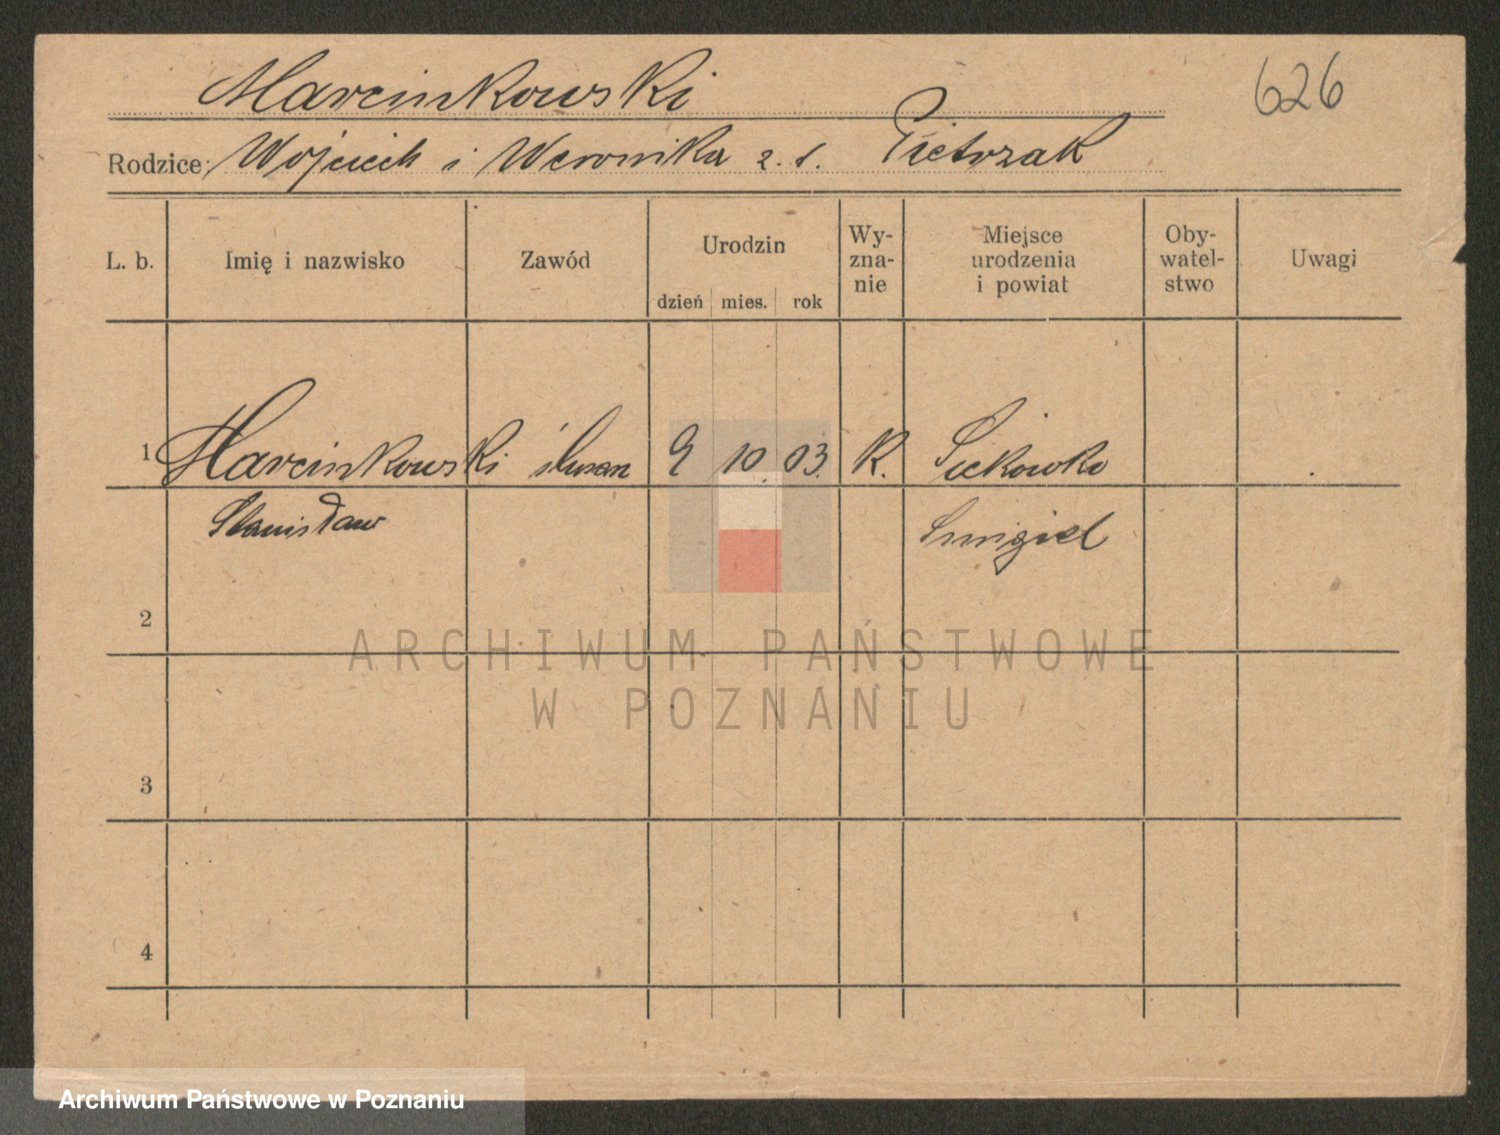 Marcinkowski
626
Rodzice: Wojciech i Weronika z. d. Pietrzak
L. b.
Imię i nazwisko
Zawód
Urodzin
dzień mies. rok
Wy-
zna-
nie
Miejsce
urodzenia
i powiat
Oby-
watel-
stwo
Uwagi
1 Marcinkowski ślusarz 9 10. 03. R. Siekówko
Stanisław Śmigiel
2
3
4
ARCHIWUM PAŃSTWOWE
W POZNANIU
Archiwum Państwowe w Poznaniu